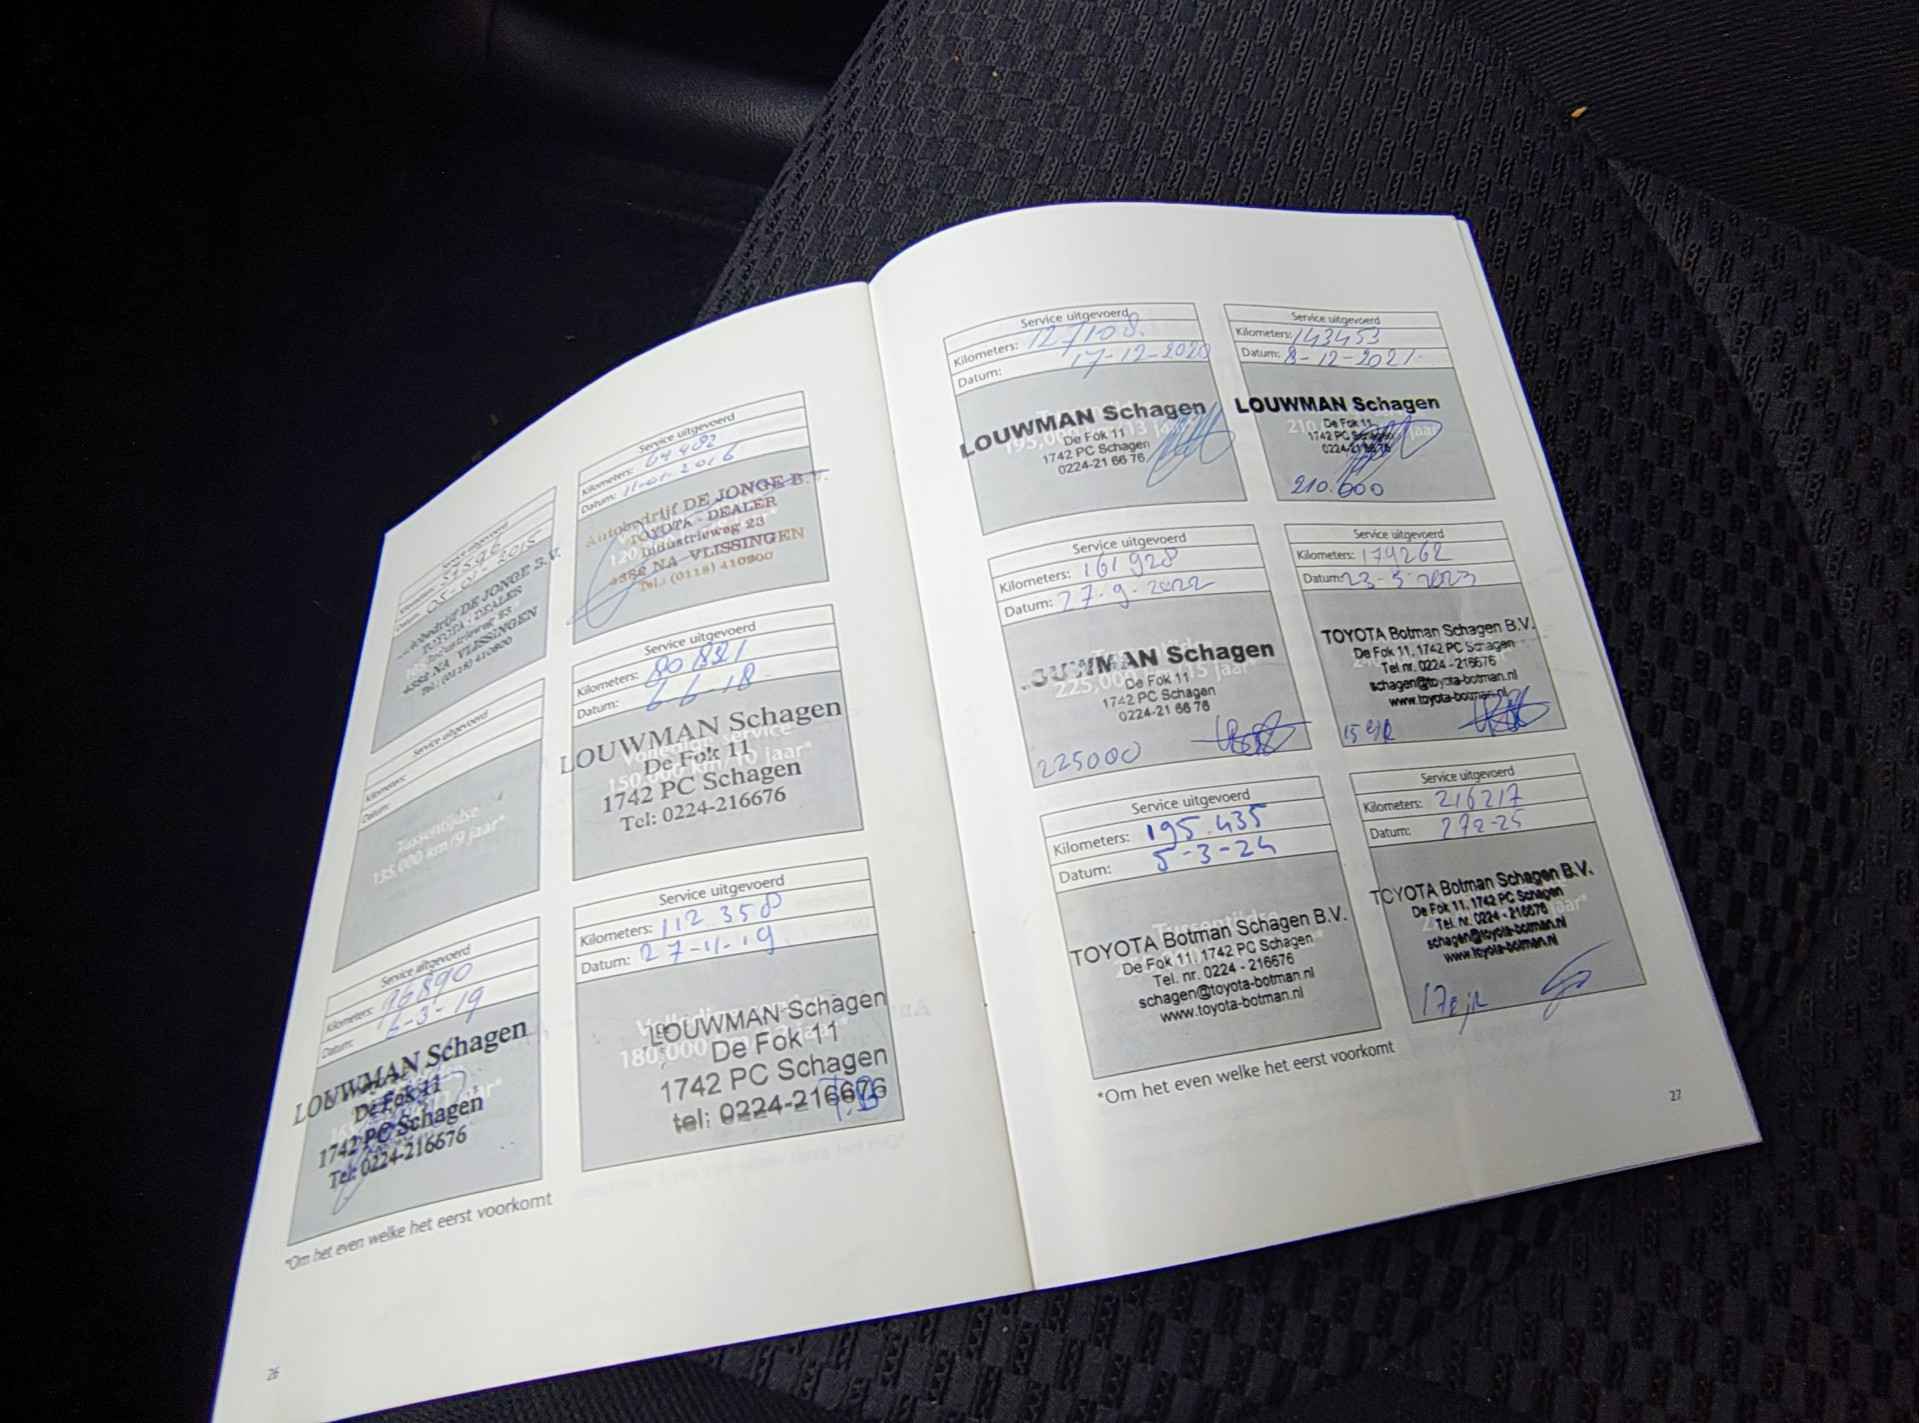 Service uitgevoerd
Datum: 05-01-2015
Autobedrijf DE JONGE B.V.
TOYOTA - DEALER
Industrieweg 23
4382 NA VLISSINGEN
Tel.: (0118) 410800
Service uitgevoerd
Kilometers: 64482
Datum: 11-01-2016
Autobedrijf DE JONGE B.V.
TOYOTA - DEALER
Industrieweg 23
4382 NA VLISSINGEN
Tel.: (0118) 410800
Service uitgevoerd
Kilometers:
Datum:
Tussentijdse
135.000 km/9 jaar*
Service uitgevoerd
Kilometers: 80821
Datum: 6-6-18
LOUWMAN Schagen
De Fok 11
150.000 km/10 jaar*
1742 PC Schagen
Tel: 0224-216676
Service uitgevoerd
Kilometers: 96890
Datum: 6-3-19
LOUWMAN Schagen
De Fok 11
1742 PC Schagen
Tel: 0224-216676
Service uitgevoerd
Kilometers: 112 358
Datum: 27-11-19
LOUWMAN Schagen
De Fok 11
180.000
1742 PC Schagen
tel: 0224-216676
*Om het even welke het eerst voorkomt
26
Service uitgevoerd
Kilometers: 127108
Datum: 17-12-2020
LOUWMAN Schagen
De Fok 11
1742 PC Schagen
0224-21 66 76
Service uitgevoerd
Kilometers: 143453
Datum: 8-12-2021
LOUWMAN Schagen
De Fok 11
1742 PC Schagen
0224-21 66 76
210.000
Service uitgevoerd
Kilometers: 161928
Datum: 27.9.2022
LOUWMAN Schagen
De Fok 11
1742 PC Schagen
0224-21 66 76
225000
Service uitgevoerd
Kilometers: 179262
Datum: 23-5-2023
TOYOTA Botman Schagen B.V.
De Fok 11, 1742 PC Schagen
Tel nr. 0224 - 216676
schagen@toyota-botman.nl
www.toyota-botman.nl
Service uitgevoerd
Kilometers: 195.435
Datum: 5-3-24
TOYOTA Botman Schagen B.V.
De Fok 11, 1742 PC Schagen
Tel. nr. 0224 - 216676
schagen@toyota-botman.nl
www.toyota-botman.nl
Service uitgevoerd
Kilometers: 216217
Datum: 272-25
TOYOTA Botman Schagen B.V.
De Fok 11, 1742 PC Schagen
Tel. nr. 0224 - 216676
schagen@toyota-botman.nl
www.toyota-botman.nl
*Om het even welke het eerst voorkomt
27